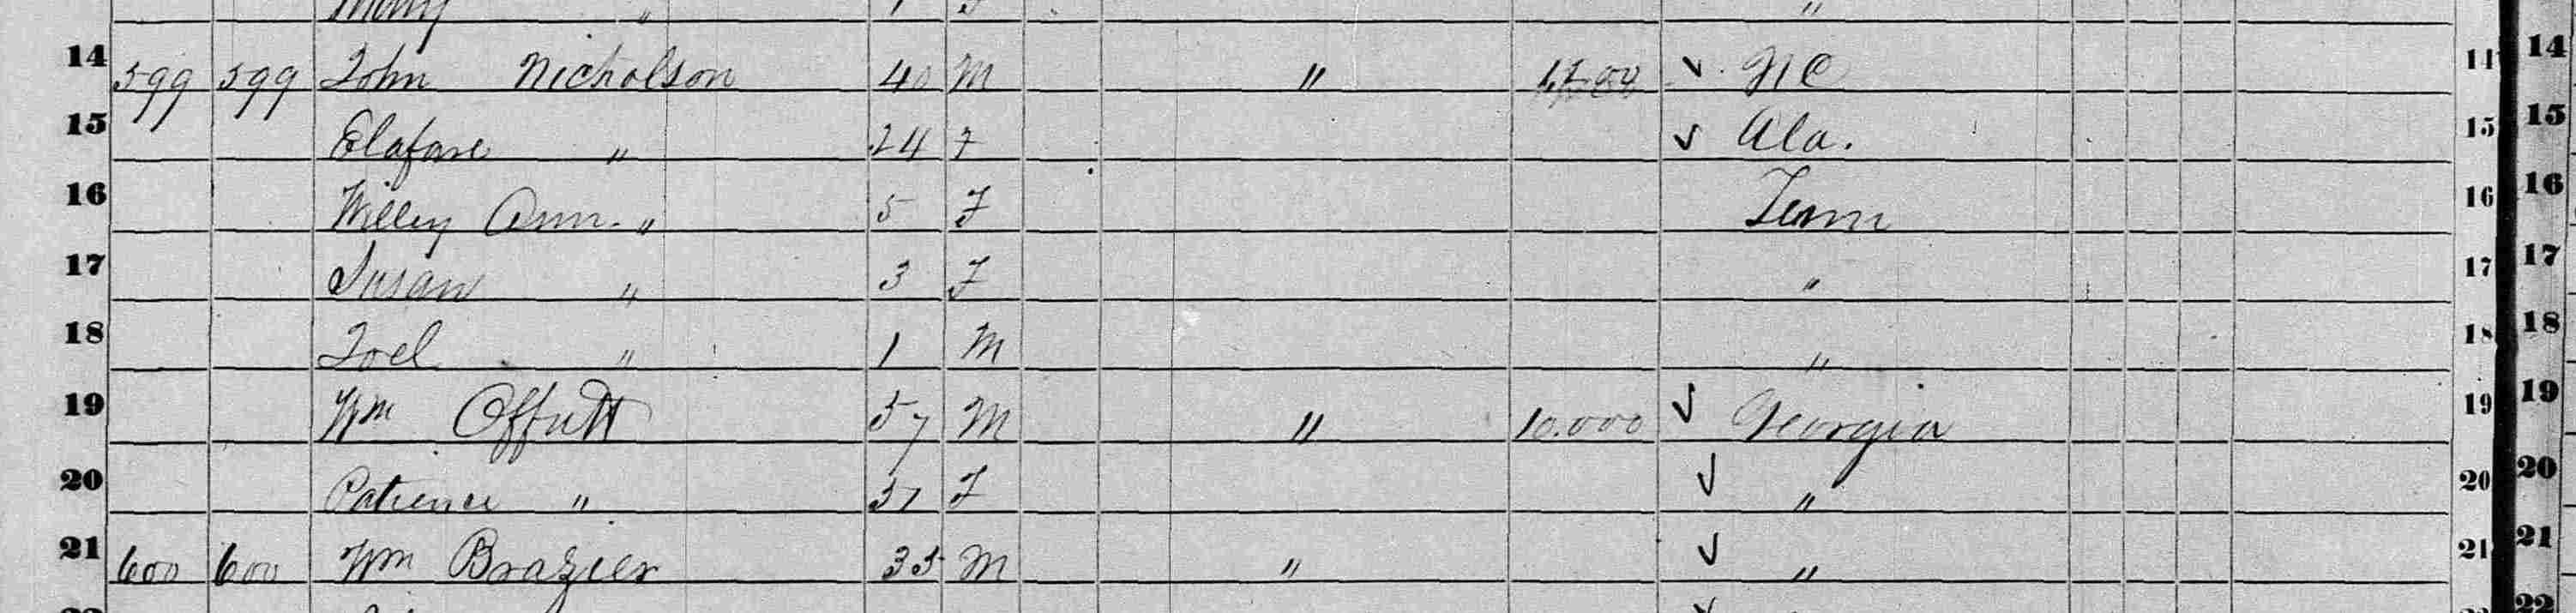 Mary " 1 F "
14 599 599 John Nicholson 40 M " ✓ NC 14 14
15 Elafare " 24 F ✓ Ala. 15 15
16 Willey Ann " 5 F Tenn 16 16
17 Susan " 3 F " 17 17
18 Joel " 1 M " 18 18
19 Wm Offutt 57 M " 10.000 ✓ Georgia 19 19
20 Patience " F ✓ " 20 20
21 600 600 Wm Brazier 35 M " ✓ " 21 21
22